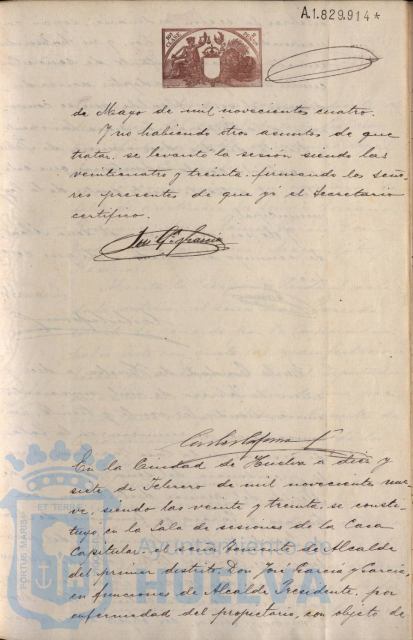 A.1.829.914*
de Mayo de mil novecientos cuatro.
Y no habiendo otros asuntos de que
tratar, se levantó la sesión siendo las
veintiuna y treinta, firmando los seño-
res presentes de que yo el Secretario
certifico.
José Gª García
En la Ciudad de Huelva a diez y
siete de Febrero de mil novecientos nue-
ve, siendo las veinte y treinta, se consti-
tuyó en la Sala de sesiones de la Casa
Capitular, el señor Teniente de Alcalde
del primer distrito, Don José García y García,
en funciones de Alcalde Presidente, por
enfermedad del propietario, con objeto de
PORTUS MARIS
ET TERRAE
Ayuntamiento de
HUELVA